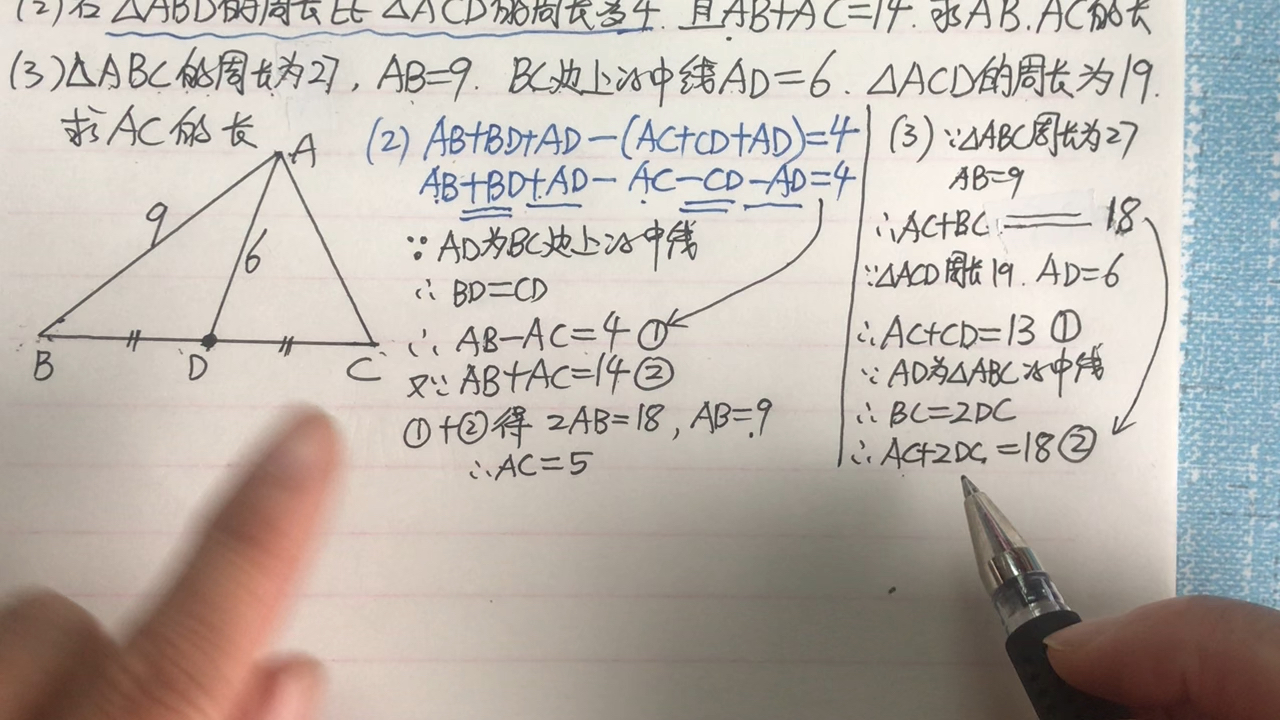 (2)若△ABD的周长比△ACD的周长多4.且AB+AC=14.求AB.AC的长
(3)△ABC的周长为27,AB=9.BC边上的中线AD=6.△ACD的周长为19.
求AC的长
A
9
6
B
D
C
(2) AB+BD+AD-(AC+CD+AD)=4
AB+BD+AD-AC-CD-AD=4
∵AD为BC边上的中线
∴BD=CD
∴AB-AC=4①
又∵AB+AC=14②
①+②得 2AB=18,AB=9
∴AC=5
(3)∵△ABC周长为27
AB=9
∴AC+BC=18
∵△ACD周长19.AD=6
∴AC+CD=13①
∵AD为△ABC的中线
∴BC=2DC
∴AC+2DC=18②